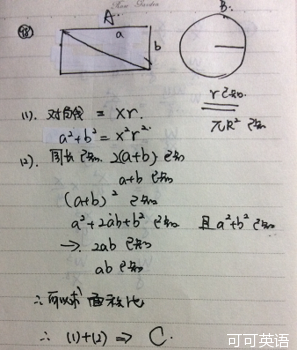 A.
B.
a
b
r已知.
πR² 已知
(1). 对角线 = xr.
a²+b² = x²r².
(2). 周长已知. 2(a+b) 已知
a+b 已知
(a+b)² 已知
a²+2ab+b² 已知 且 a²+b² 已知
→ 2ab 已知
ab 已知
∴ 可以求 面积比
∴ (1)+(2) ⇒ C.
可可英语